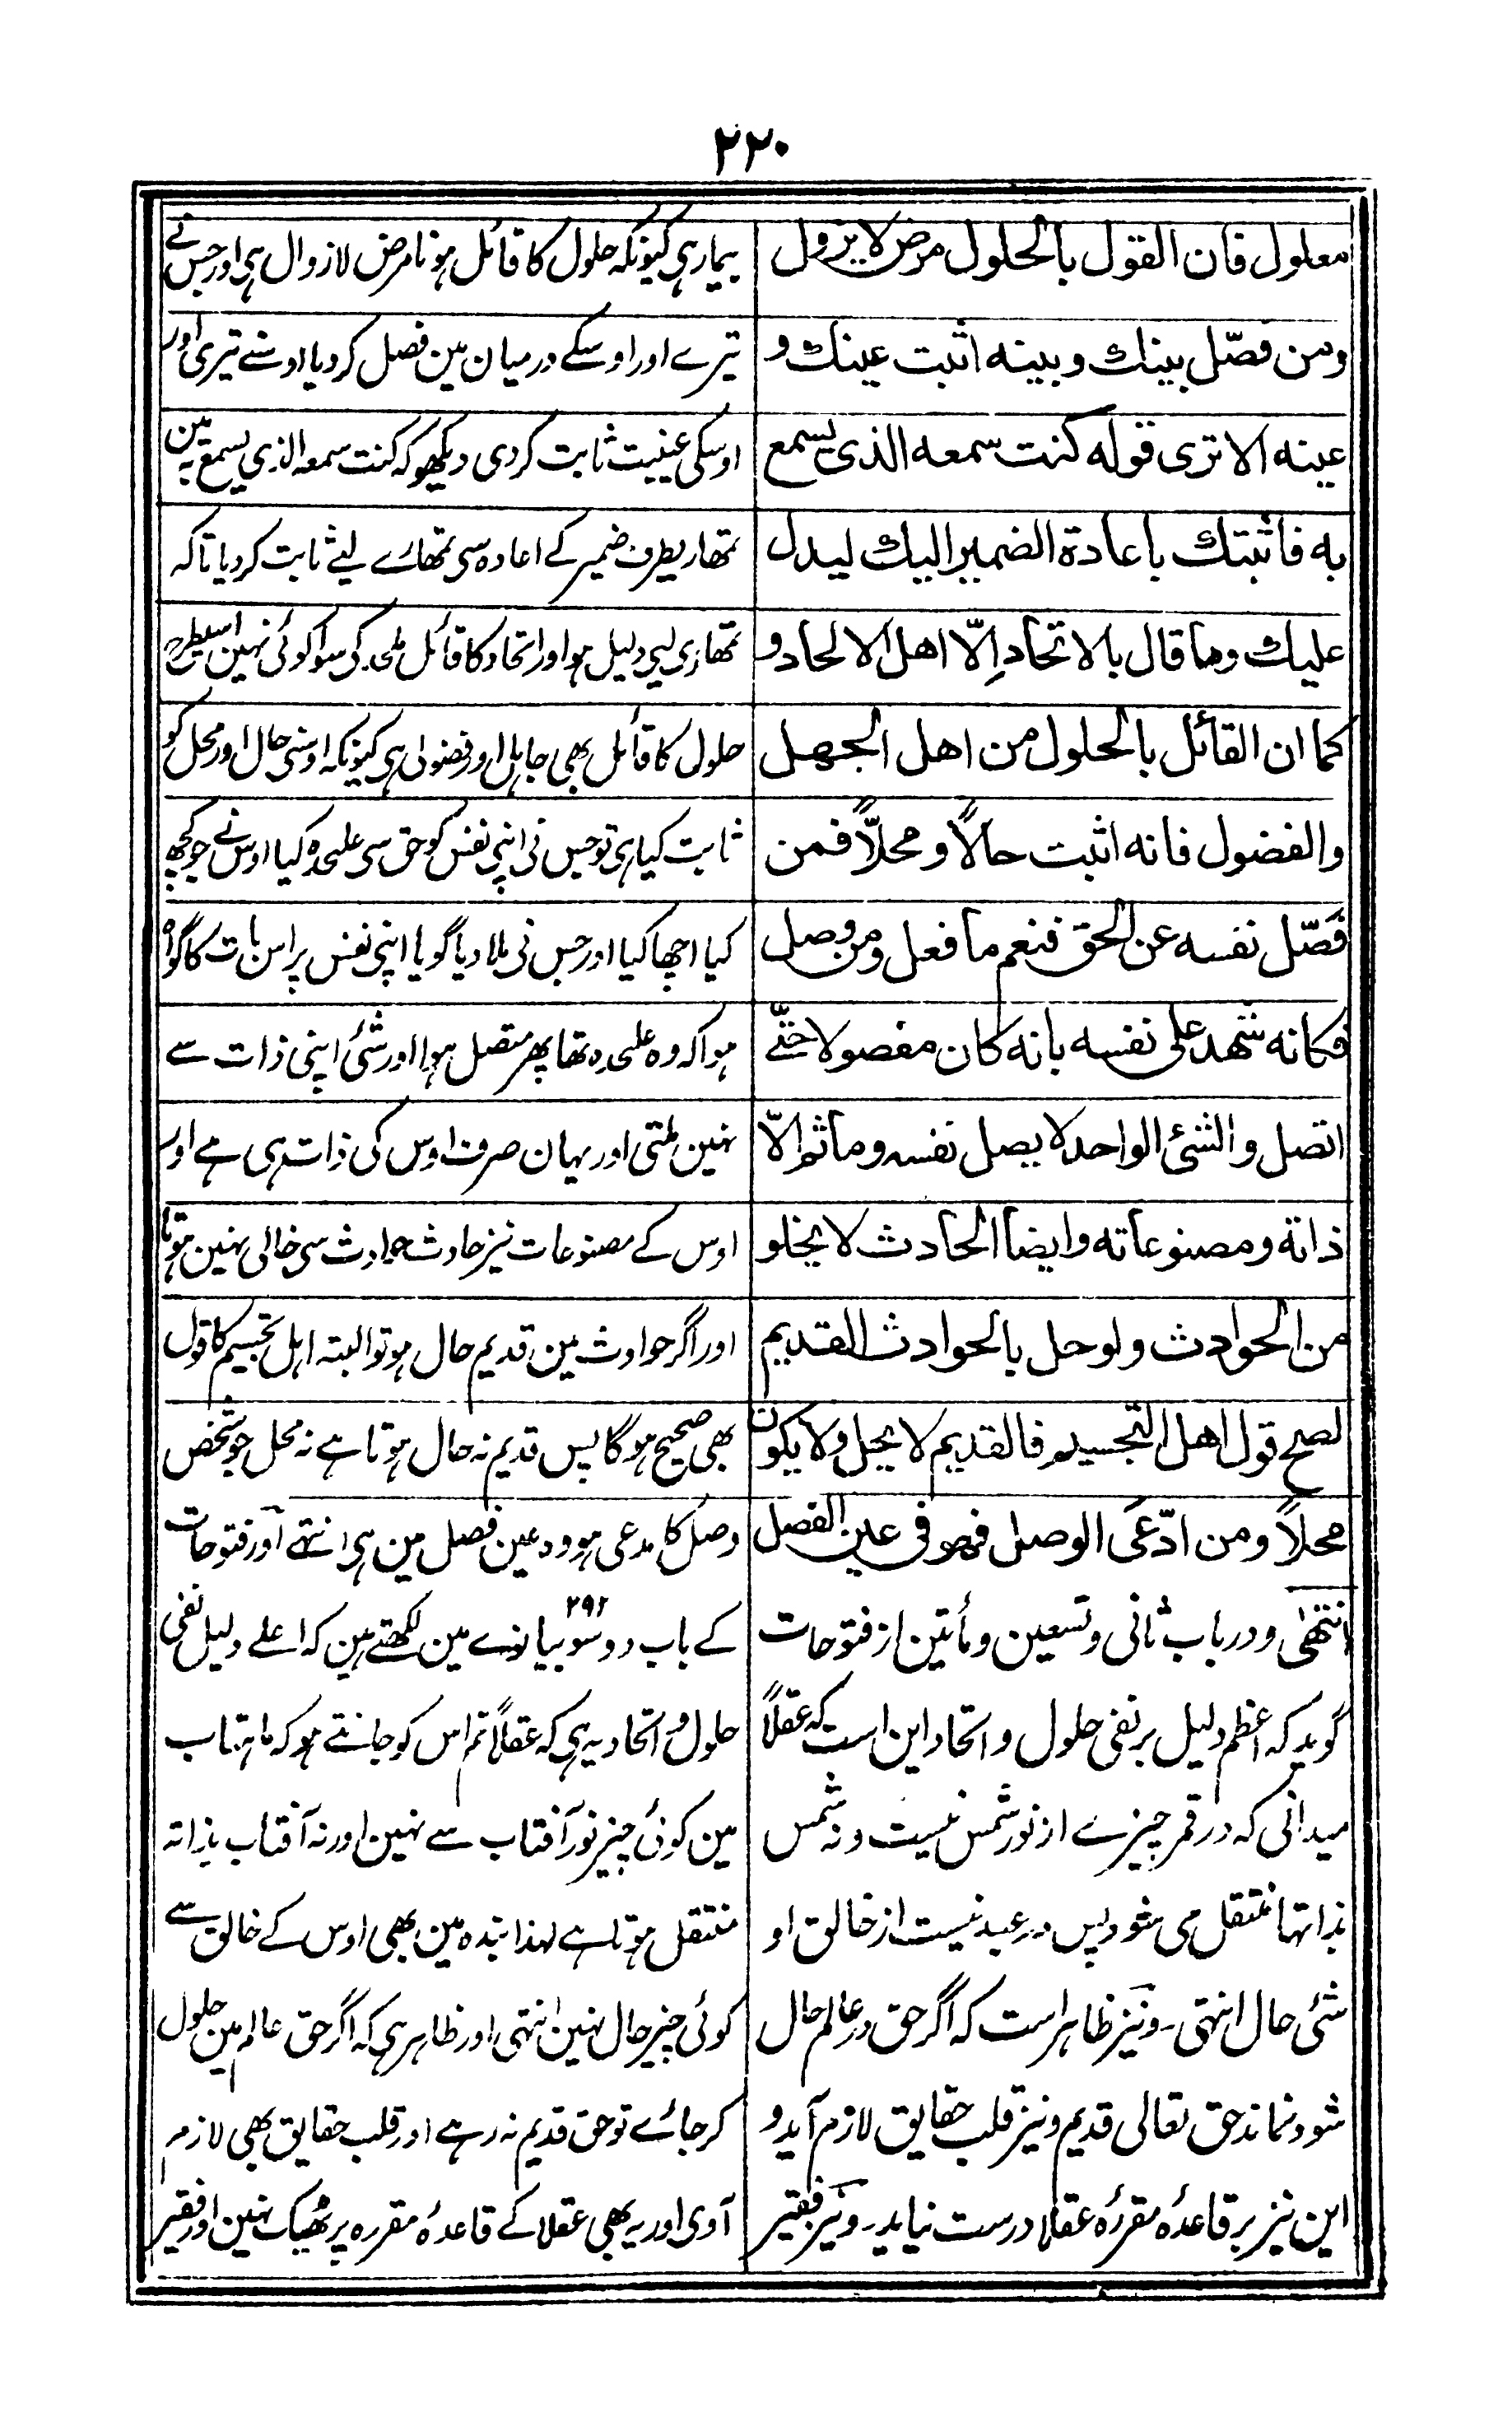 ۲۲۰
معلول فان القول بالحلول مرض لا يزول
ومن فصّل بينك وبينه اثبت عينك و
عينه الا ترى قوله كنت سمعه الذى يسمع
به فاثبتك باعادة الضمير اليك ليدل
عليك وما قال بالاتحاد اِلّا اهل الالحاد و
كما ان القائل بالحلول من اهل الجهل
والفضول فانه اثبت حالاً ومحلاً فمن
فصّل نفسه عن الحق فنعم ما فعل ومن وصل
فكانه شهد على نفسه بانه كان مفصولا حتّٰے
اتصل والشئ الواحد لا يصل نفسه وما ثم الّا
ذاته ومصنوعاته وايضا الحادث لا يخلو
من الحوادث ولو حل بالحوادث القديم
لصح قول اهل التجسيم فالقديم لا يحل ولا يكون
محلاً ومن ادّعى الوصل فهو فى عين الفصل
انتهٰی و در باب ثانی و تسعین و مأتین از فتوحات
گوید کہ اعظم دلیل بر نفی حلول و اتحاد این است کہ عقلاً
میدانی کہ در قمر چیزے از نور شمس نیست و نہ شمس
بذاتہا منتقل می شود پس در عبد نیست از خالق او
شئی حال انتہی ۔ و نیز ظاہر است کہ اگر حق در عالم حال
شود نماند حق تعالی قدیم و نیز قلب حقایق لازم آید و
این نیز بر قاعدہٴ مقررہٴ عقلا درست نیاید ۔ و نیز فقیر
بیمار ہی کیونکہ حلول کا قائل ہونا مرض لازوال ہی اور جس نے
تیرے اور اوسکے درمیان مین فصل کر دیا اوسنے تیری اور
اوسکی عینیت ثابت کر دی دیکھو کہ کنت سمعہ الذی یسمع بہ مین
تمھاریطرف ضمیر کے اعادہ سی تمھارے لیے ثابت کر دیا تاکہ
تمھاری لیی دلیل ہو اور اتحاد کا قائل ملحد کی سوا کوئی نہین اسیطرح
حلول کا قائل بھی جاہل اور فضولی ہی کیونکہ اوسنی حال اور محل کو
ثابت کیا ہی تو جس نی اپنی نفس کو حق سی علیحدہ کیا اوس نے جو کچھ
کیا اچھا کیا اور جس نی ملا دیا گویا اپنی نفس پر اس بات کا گواہ
ہوا کہ وہ علیحدہ تھا پھر متصل ہوا اور شئی اپنی ذات سے
نہین ملتی اور یہان صرف اوس کی ذات ہی ہے اور
اوس کے مصنوعات نیز حادث حوادث سی خالی نہین ہوتا
اور اگر حوادث مین قدیم حال ہو تو البتہ اہل تجسیم کا قول
بھی صحیح ہوگا پس قدیم نہ حال ہوتا ہے نہ محل جو شخص
وصل کا مدعی ہو وہ عین فصل مین ہی انتہے اور فتوحات
کے باب دو سو بیانوے ۲۹۲ مین لکھتے ہین کہ اعلے دلیل نفی
حلول و اتحاد یہ ہی کہ عقلاً تم اس کو جانتے ہو کہ ماہتاب
مین کوئی چیز نور آفتاب سے نہین اور نہ آفتاب بذاتہ
منتقل ہوتا ہے لہذا بندہ مین بھی اوس کے خالق سے
کوئی چیز حال نہین انتہی اور ظاہر ہی کہ اگر حق عالم مین حلول
کر جائے تو حق قدیم نہ رہے اور قلب حقایق بھی لازم
آوی اور یہ بھی عقلا کے قاعدہٴ مقررہ پر ٹھیک نہین اور فقیر